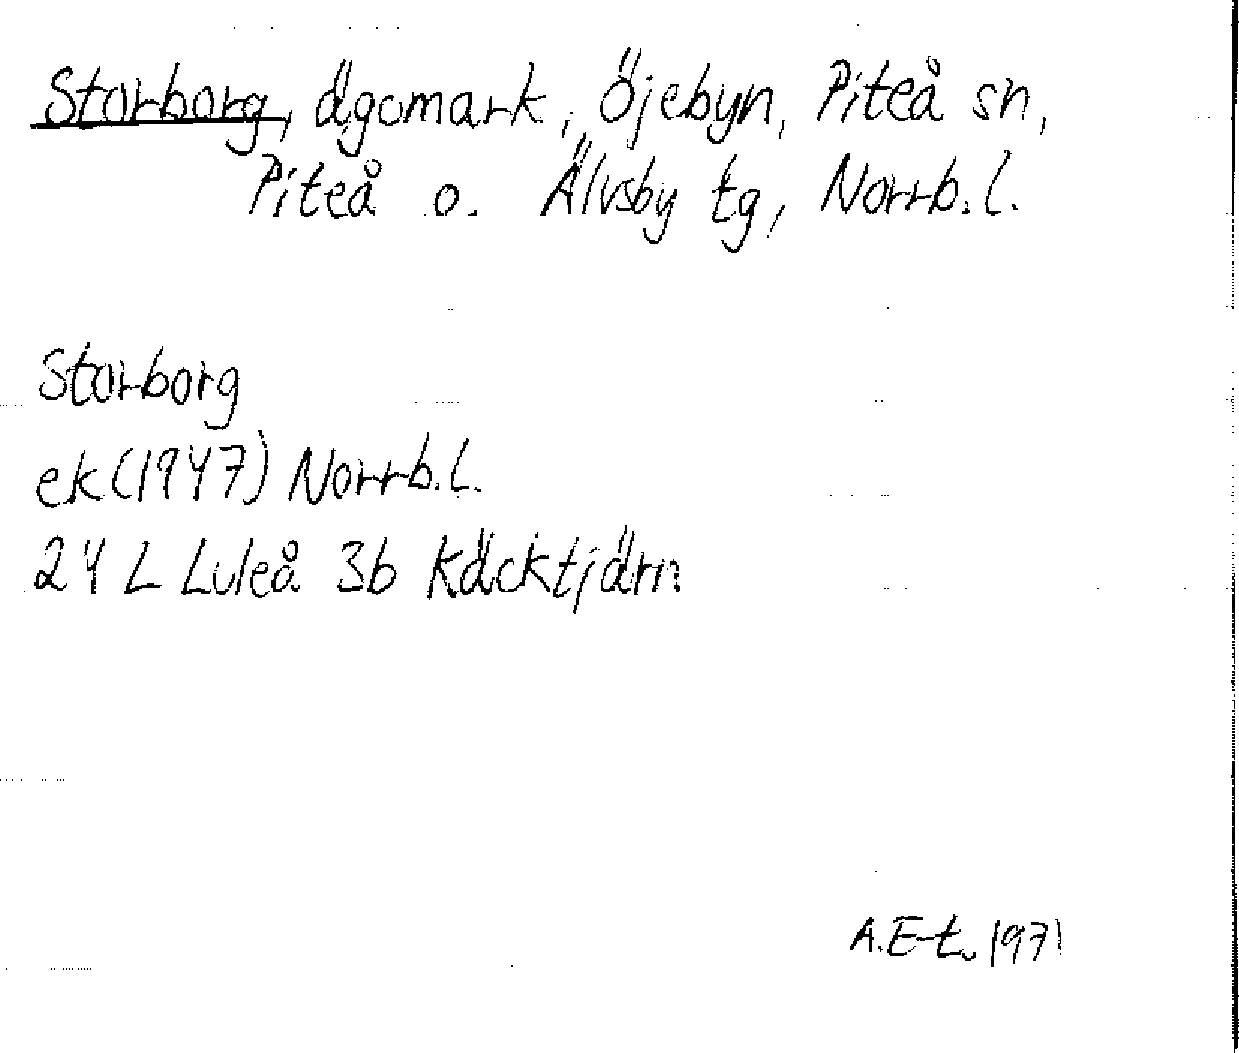 Storborg, ägomark, Öjebyn, Piteå sn,
Piteå o. Älvsby tg, Norrb.l.
Storborg
ek (1947) Norrb.l.
24 L Luleå 3b Käcktjärn
A.E-t. 1971